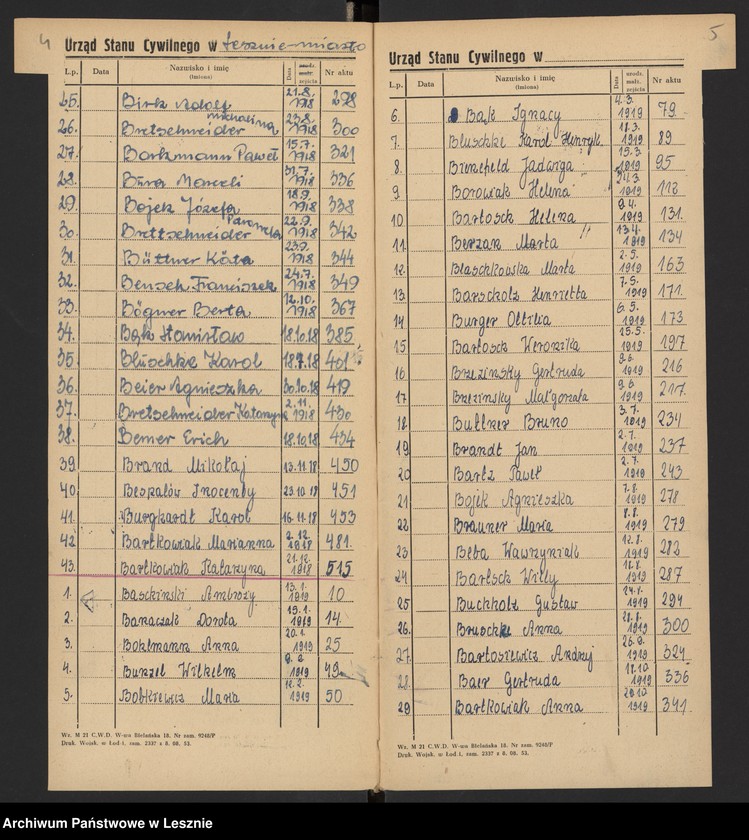 4
Urząd Stanu Cywilnego w Lesznie-miasto
L.p. Data Nazwisko i imię (Imiona) Data urodz. małż. zejścia Nr aktu
25. Birk Adolf 21.8. 1918 298
26. Bretschneider Michalina 23.8. 1918 300
27. Borkmann Paweł 15.7. 1918 321
28. Bura Marceli 31.7. 1918 336
29. Bojek Józefa 18.9. 1918 338
30. Brettschneider 22.9. 1918 342
31. Büttner Käta 23.9. 1918 344
32. Bensch Franciszek 24.7. 1918 349
33. Bögner Berta 12.10. 1918 367
34. Bąk Stanisław 18.10.18 385
35. Bluschke Karol 18.7.18 401
36. Beier Agnieszka 30.10.18 419
37. Bretschneider Katarzyna 2.11. 1918 430
38. Bemer Erich 18.10.18 434
39. Brand Mikołaj 13.11.18 450
40. Bespalów Inocenty 23.10.18 451
41. Burghardt Karol 16.11.18 453
42. Bartkowiak Marianna 2.12. 1918 481.
43. Bartkowiak Katarzyna 21.12. 1918 515
1. Baschinski Ambroży 13.1. 1919 10
2. Banaczak Dorota 15.1. 1919 14
3. Bohlmann Anna 20.1. 1919 25
4. Bunzel Wilhelm 9.2. 1919 49
5. Bobkiewicz Maria 12.2. 1919 50
Wz. M 21 C.W.D. W-wa Bielańska 18. Nr zam. 9248/P
Druk. Wojsk. w Łod i. zam. 2337 z 8. 08. 53.
5
Urząd Stanu Cywilnego w
L.p. Data Nazwisko i imię (Imiona) Data urodz. małż. zejścia Nr aktu
6. Bąk Ignacy 4.3. 1919 79
7. Bluschke Karol Henryk 18.3. 1919 89
8. Bienefeld Jadwiga 15.3. 1919 95
9 Borowiak Helena 24.3. 1919 112
10 Bartosch Helena 9.4. 1919 131.
11 Berzan Marta 13.4. 1919 134
12 Blaschkowska Marta 2.5. 1919 163
13 Barscholz Henrietta 7.5. 1919 171.
14 Burger Ottilia 6.5. 1919 173
15 Bartosch Weronika 15.5. 1919 197
16 Brzezinsky Gertruda 9.6. 1919 216
17 Brzezinsky Małgorzata 9.6. 1919 217.
18 Buttner Bruno 3.7. 1919 234
19 Brandt Jan 2.7. 1919 237
20 Bartz Paweł 2.7. 1919 243
21 Bojek Agnieszka 7.8. 1919 278
22 Brauner Maria 8.8. 1919 279
23 Beba Wawrzyniak 12.8. 1919 282
24 Bartsch Willy 18.8. 1919 287
25 Buchholz Gustaw 1919 294
26. Bruschke Anna 1919 300
27. Bartosiewicz Andrzej 26.9. 1919 324
28. Baer Gertruda 18.10. 1919 336
29 Bartkowiak Anna 20.10 1919 341
Wz. M 21 C.W.D. W-wa Bielańska 18. Nr zam. 9248/P
Druk. Wojsk. w Łod i. zam. 2337 z 8. 08. 53.
Archiwum Państwowe w Lesznie